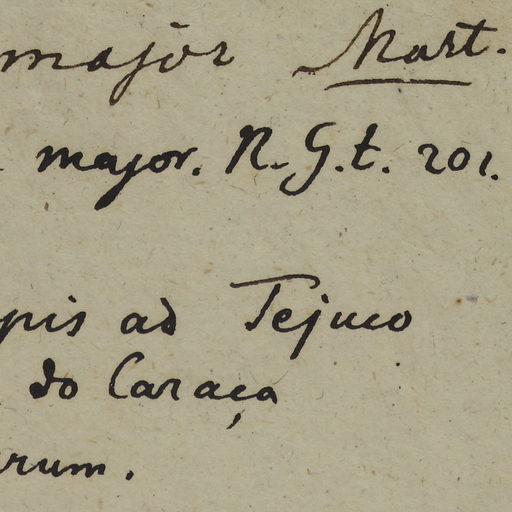 major Mart.
major. N. G. t. 201.
pis ad Tejuco
do Caraça
rum.